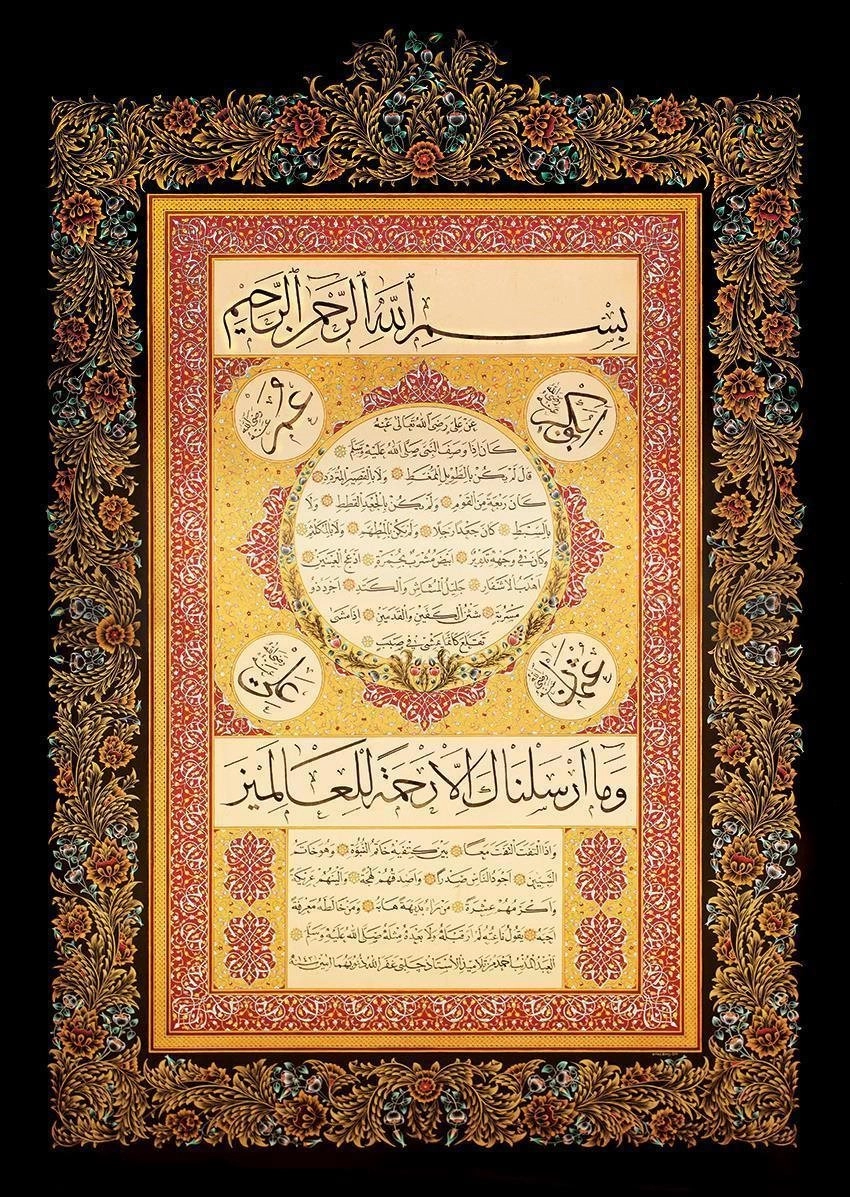 بِسْمِ ٱللَّهِ ٱلرَّحْمَٰنِ ٱلرَّحِيمِ
أبو بكر رضي الله عنه
عمر رضي الله عنه
عن علي رضي الله تعالى عنه
كان اذا وصف النبي صلى الله عليه وسلم
قال لم يكن بالطويل الممغط ولا بالقصير المتردد
كان ربعة من القوم ولم يكن بالجعد القطط ولا
بالسبط كان جعدا رجلا ولم يكن بالمطهم ولا بالمكلثم
وكان في وجهه تدوير ابيض مشرب بحمرة ادعج العينين
اهدب الاشفار جليل المشاش والكتد اجرد ذو
مسربة شثن الكفين والقدمين اذا مشى
تقلع كانما يمشي في صبب
عثمان رضي الله عنه
علي رضي الله عنه
وَمَا أَرْسَلْنَاكَ إِلَّا رَحْمَةً لِلْعَالَمِينَ
واذا التفت التفت معا بين كتفيه خاتم النبوة وهو خاتم
النبيين اجود الناس صدرا واصدقهم لهجة والينهم عريكة
واكرمهم عشرة من رآه بديهة هابه ومن خالطه معرفة
احبه يقول ناعته لم ار قبله ولا بعده مثله صلى الله عليه وسلم
من تلاميذ الاستاذ چلبي غفر الله ذنوبهما امين